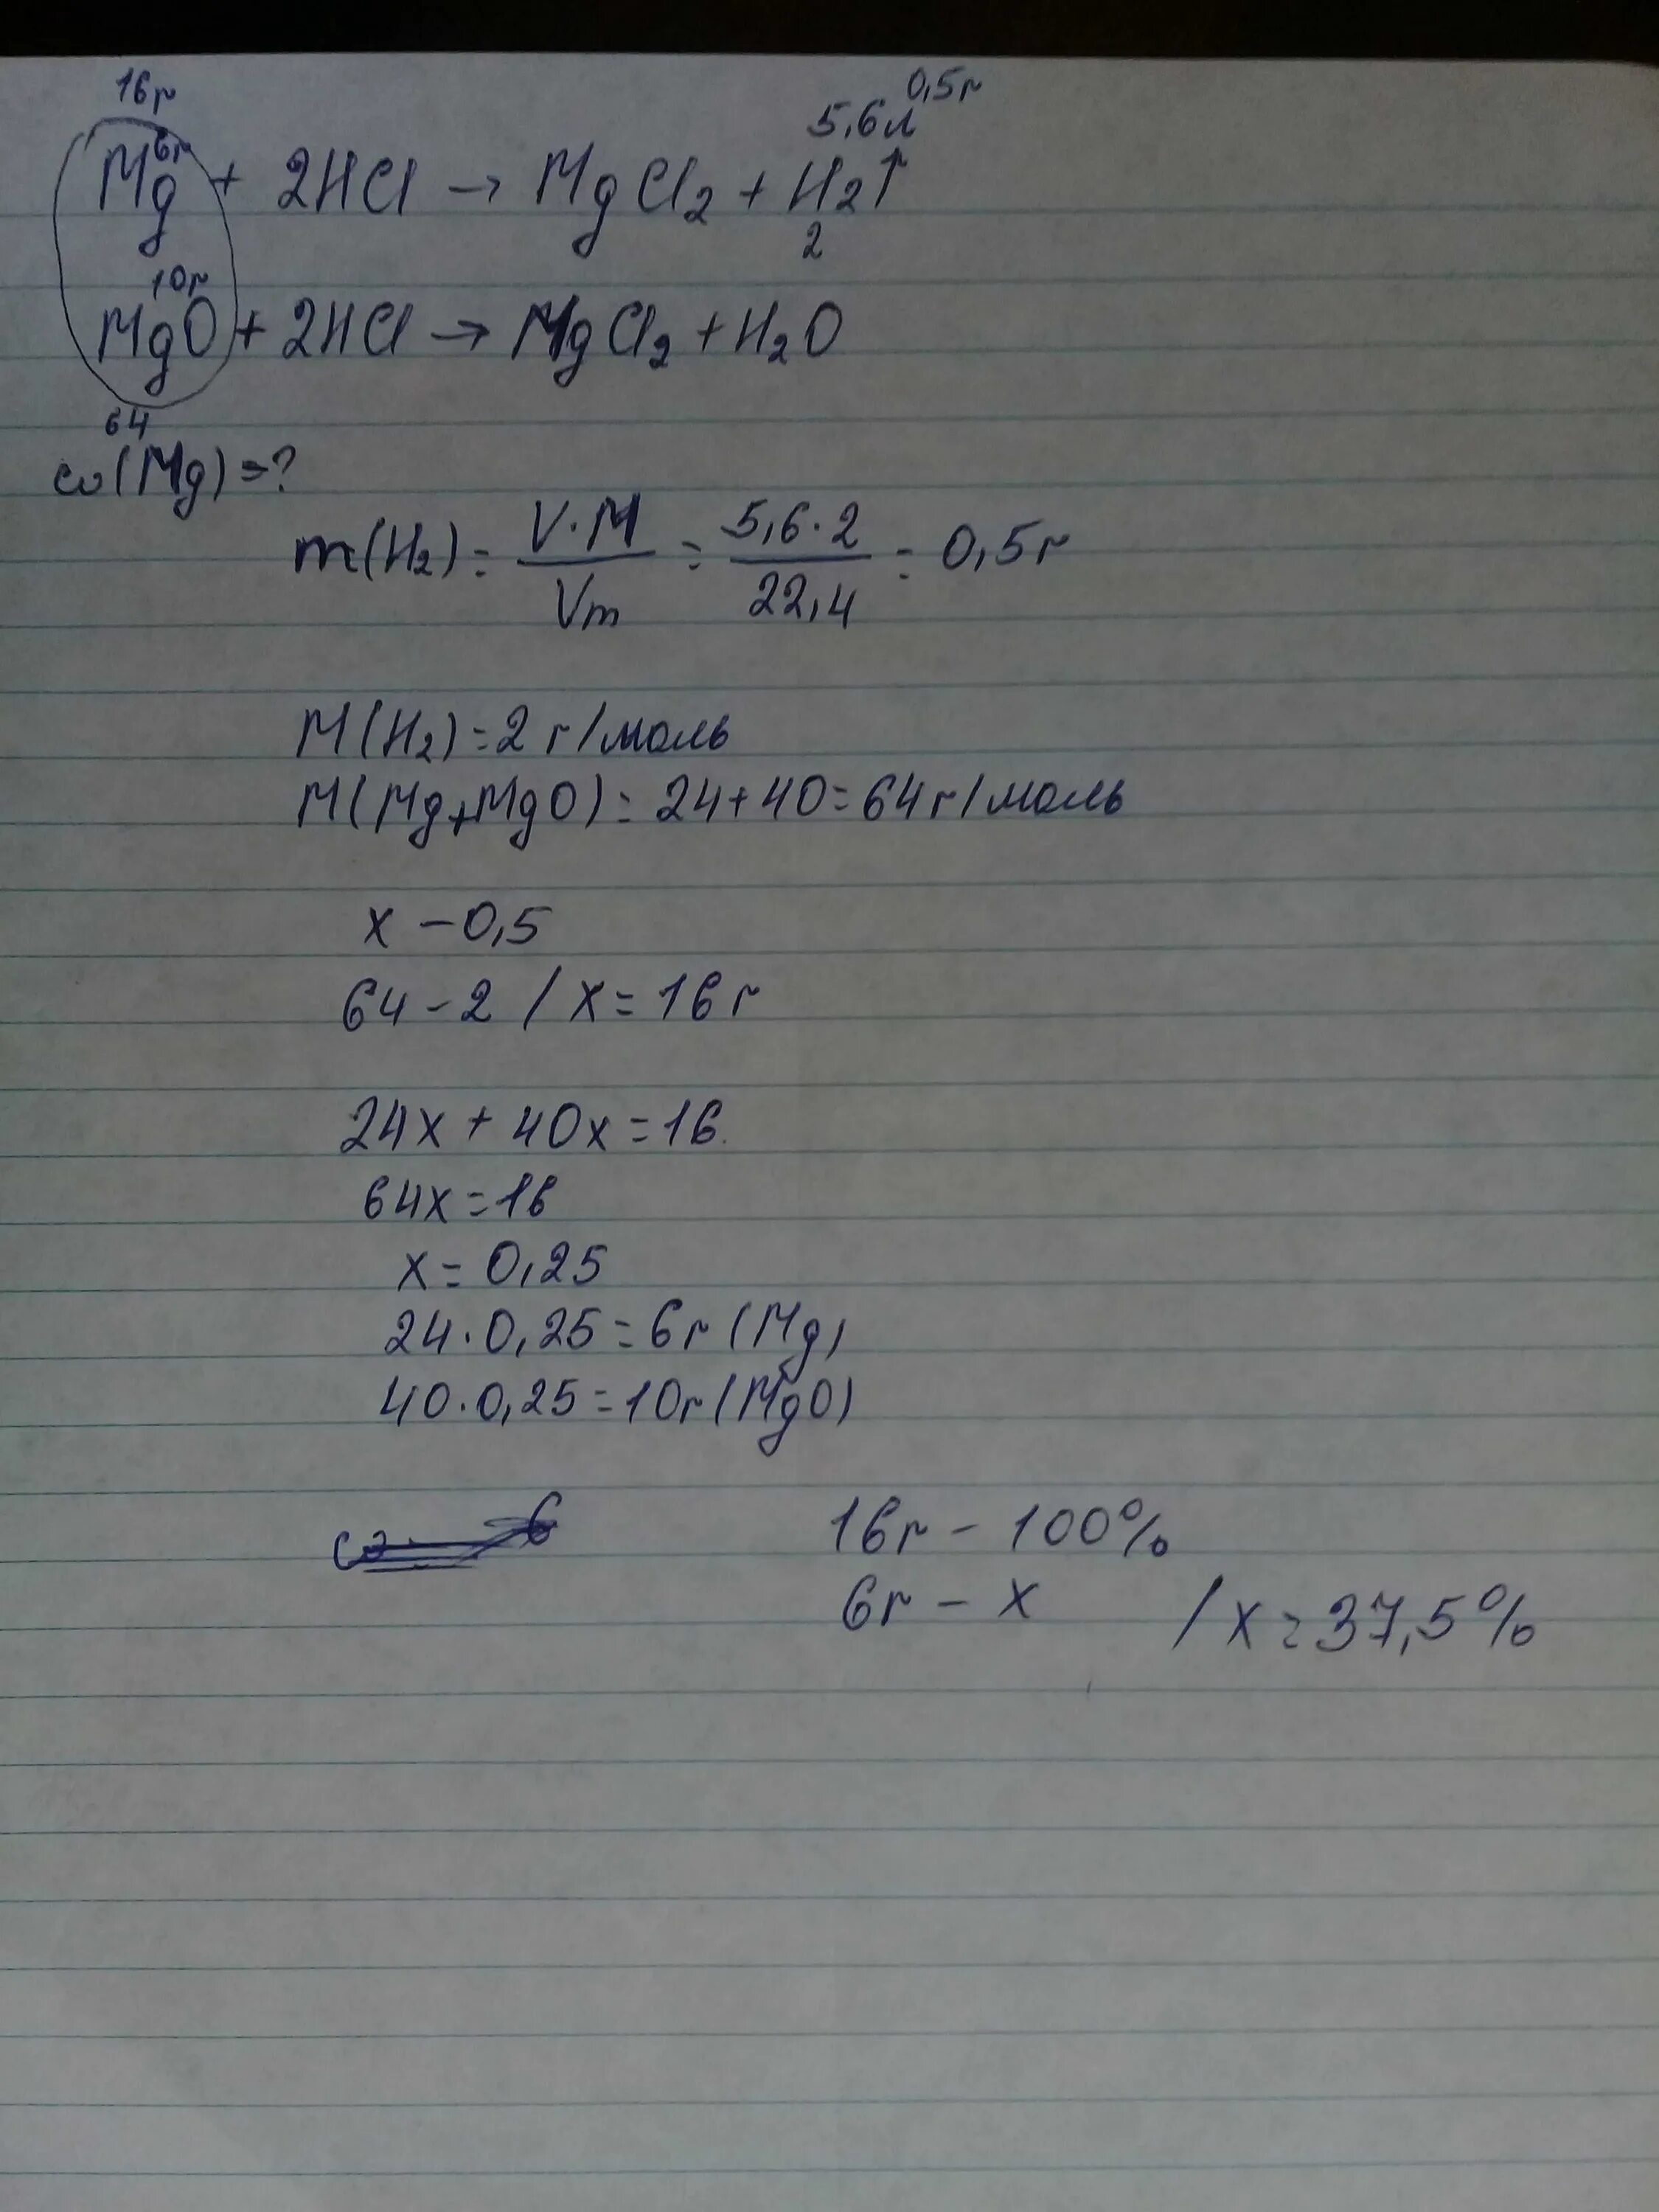 16г
0,5г
5,6л
6г
Mg + 2HCl → MgCl₂ + H₂↑
2
10г
MgO + 2HCl → MgCl₂ + H₂O
64
ω(Mg)=?
m(H₂) = V·M / Vm = 5,6·2 / 22,4 = 0,5г
M(H₂) = 2 г/моль
M(Mg+MgO) = 24+40 = 64г/моль
x – 0,5
64 – 2 / x = 16г
24x + 40x = 16
64x = 16
x = 0,25
24·0,25 = 6г (Mg)
40·0,25 = 10г (MgO)
16г – 100%
6г – x / x = 37,5%